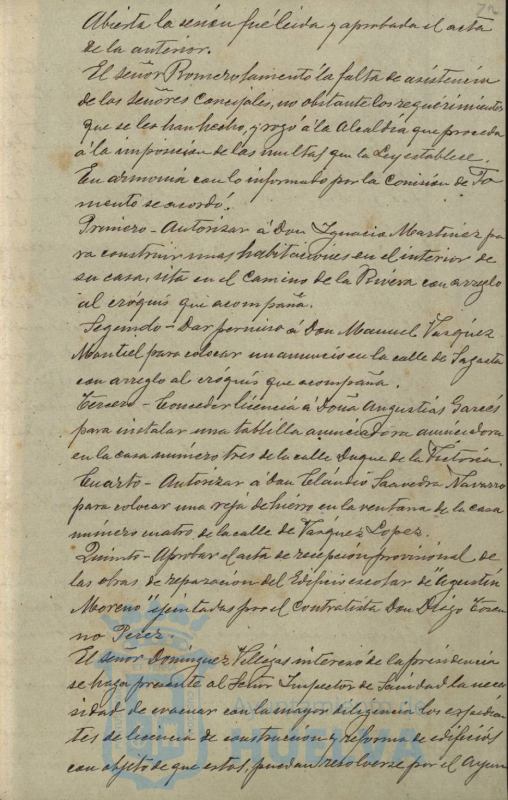 72
Abierta la sesión fué leida y aprobada el acta
de la anterior.
El señor Romero lamentó la falta de asistencia
de los señores Concejales, no obstante los requerimientos
que se les han hecho, y rogó á la Alcaldía que proceda
á la imposición de las multas que la Ley establece.
En armonía con lo informado por la Comisión de Fo
mento se acordó:
Primero - Autorizar á Don Ignacio Martinez pa
ra construir unas habitaciones en el interior de
su casa, sita en el Camino de la Rivera con arreglo
al cróquis que acompaña.
Segundo - Dar permiso á Don Manuel Vazquez
Montiel para colocar un anuncio en la calle de Sagasta
con arreglo al cróquis que acompaña.
Tercero - Conceder licencia á Doña Angustias Garcés
para instalar una tablilla anunciadora anunciadora
en la casa número tres de la calle Duque de la Victoria.
Cuarto - Autorizar á don Claudio Saavedra Navarro
para colocar una reja de hierro en la ventana de la casa
número cuatro de la calle de Vazquez Lopez.
Quinto - Aprobar el acta de recepción provisional de
las obras de reparación del Edificio escolar de "Agustín
Moreno" ejecutadas por el contratista Don Diego
no Perez.
El señor Domínguez Villegas interesó de la presidencia
se haga presente al Señor Inspector de Sanidad la nece
sidad de evacuar con la mayor diligencia los expedien
tes de licencia de construcción y reforma de edificios
con objeto de que estos, puedan resolverse por el Ayun
Ayuntamiento de
HUELVA